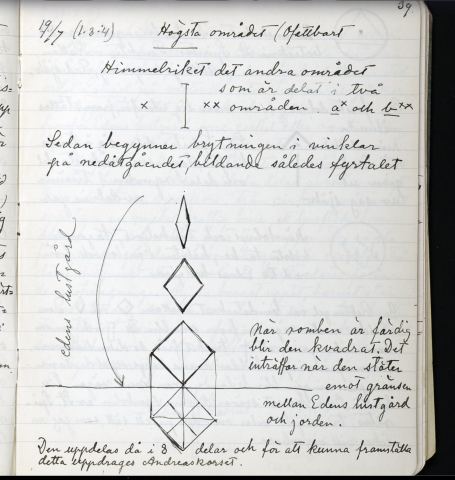 39.
19/7 (1·3·4) Högsta området (Ofattbart
Himmelriket det andra området
som är delat i två
× ×× områden. a× och b××
Sedan begynner brytningen i vinklar
på nedåtgåendet, bildande således fyrtalet
edens lustgård
När romben är färdig
blir den kvadrat. Det
inträffar när den stöter
emot gränsen
mellan Edens lustgård
och jorden.
Den uppdelas då i 8 delar och för att kunna framställa
detta uppdrages Andreaskorset.